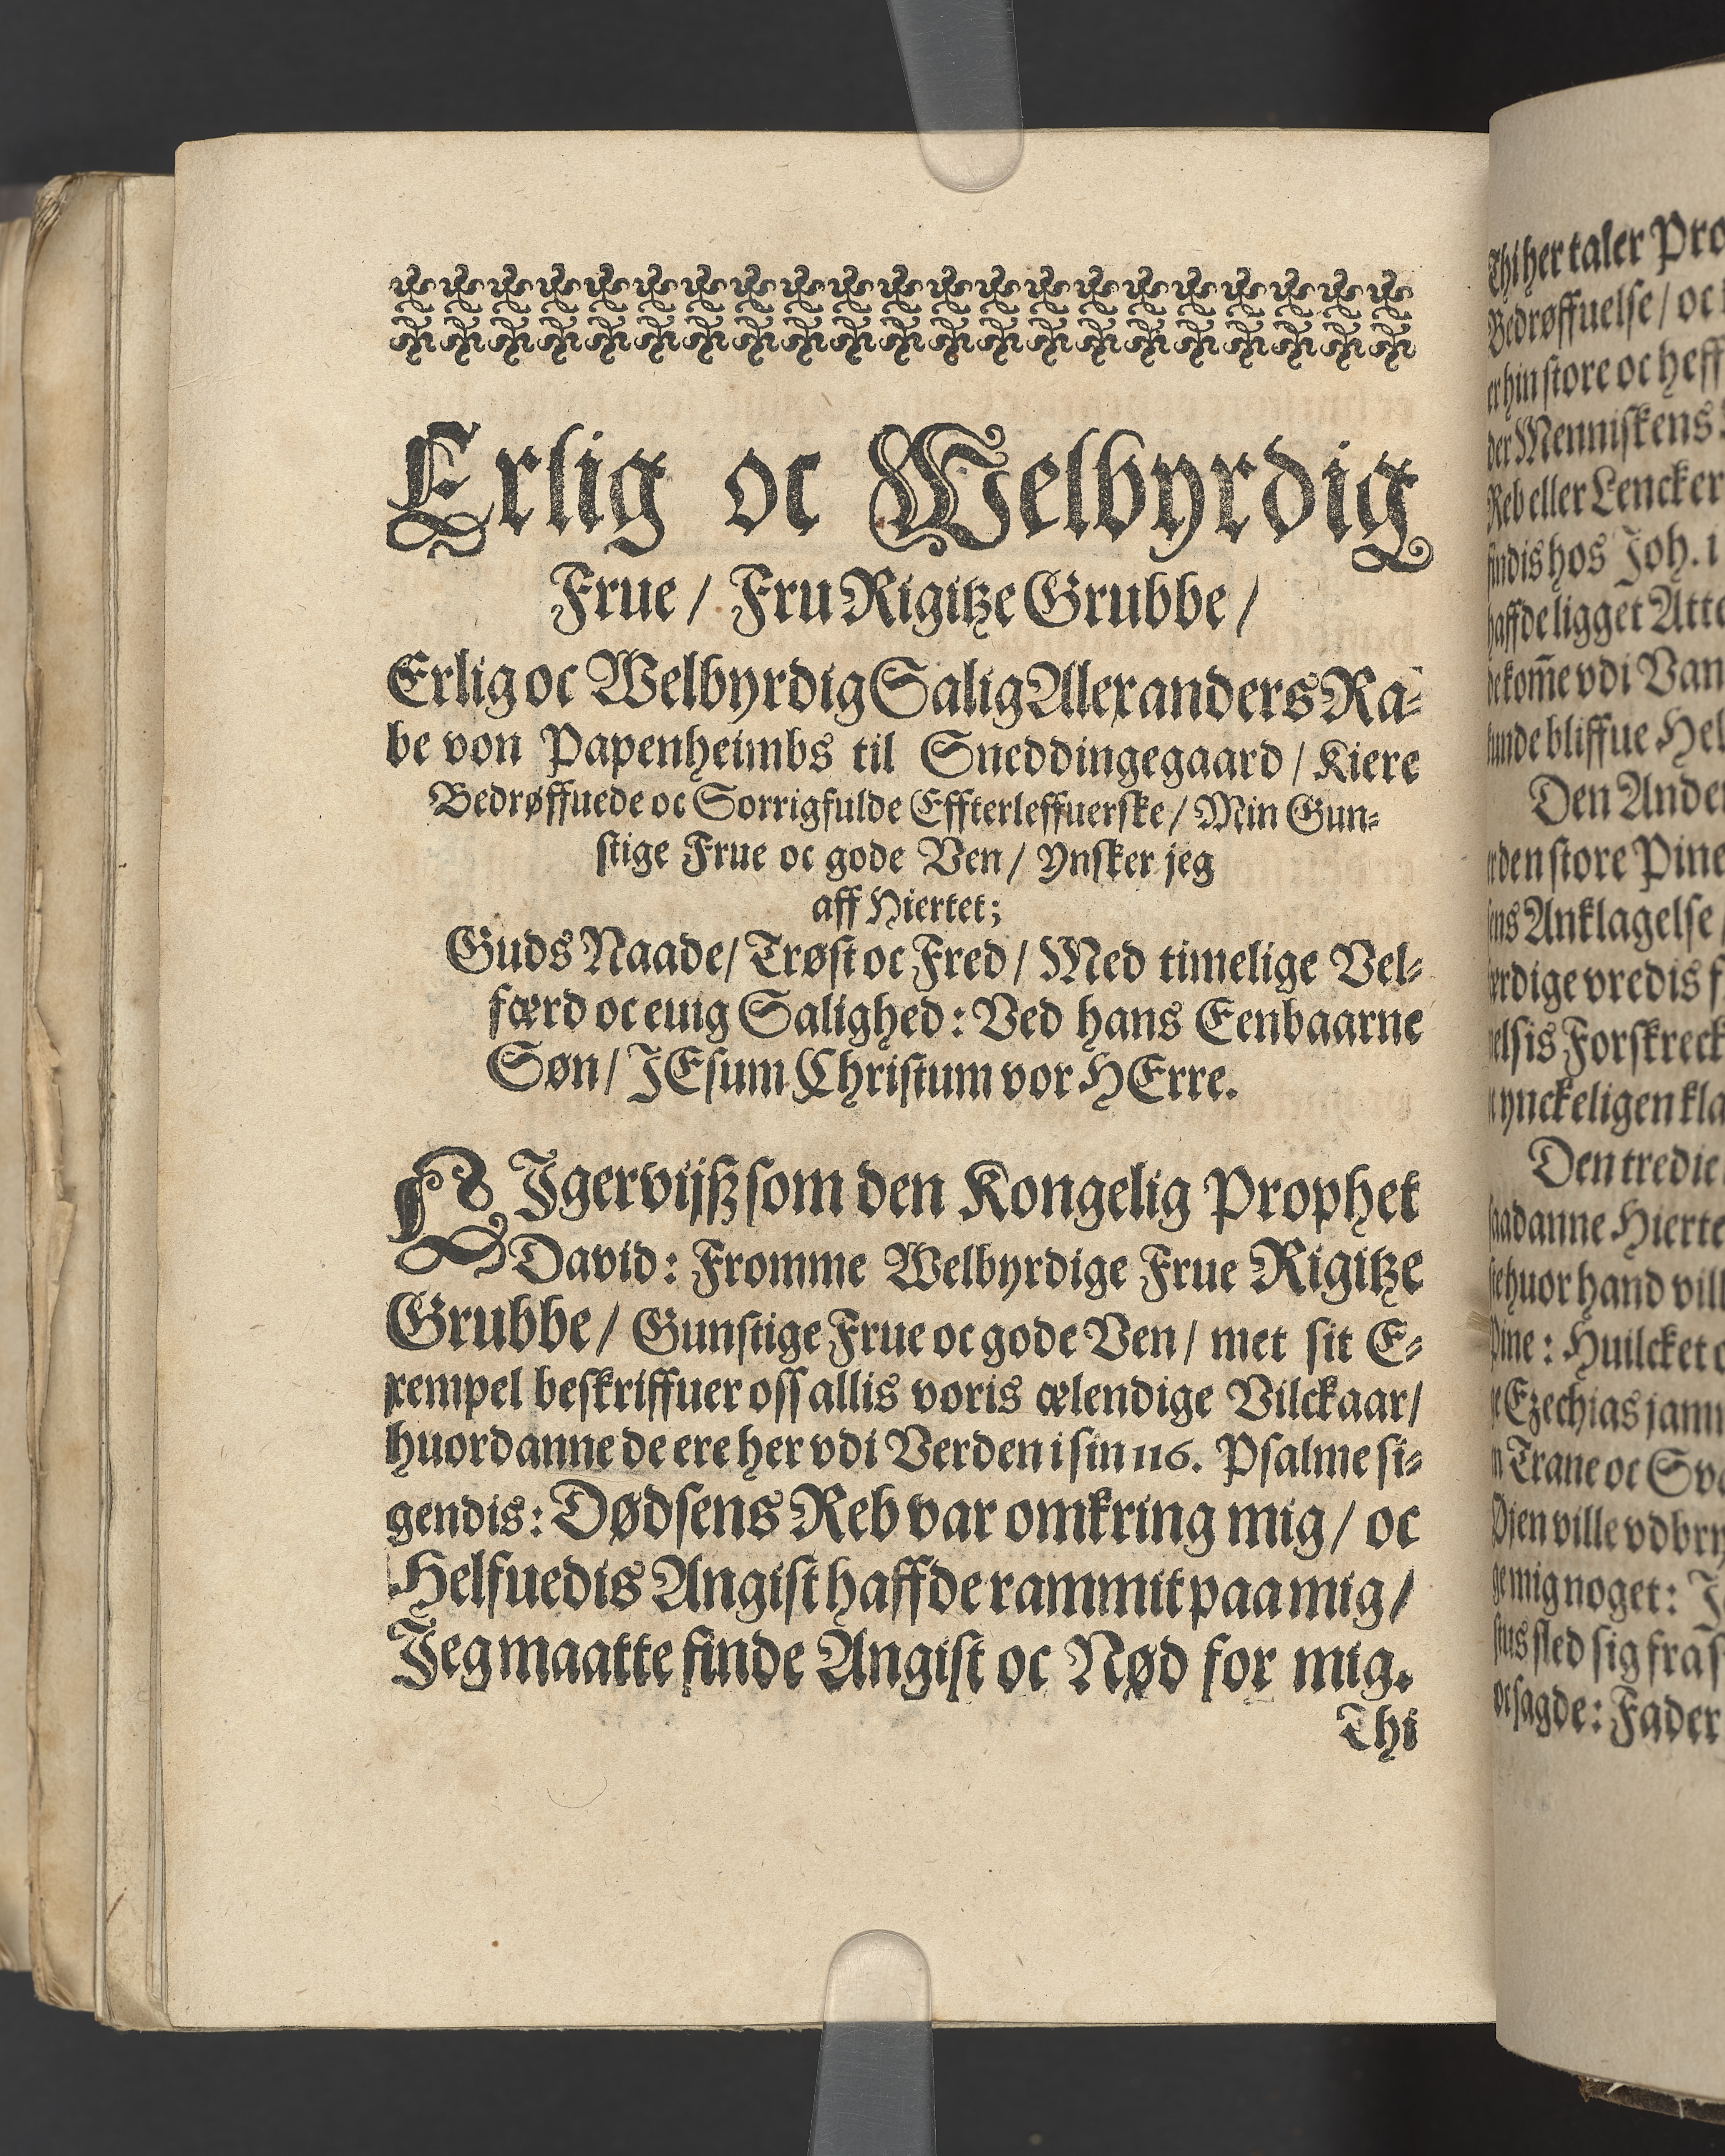 Erlig oc Welbyrdig
Frue / Fru Rigitze Grubbe /
Erlig oc Welbyrdig Salig Alexanders Ra-
be von Papenheimbs til Sneddingegaard / Kiere
Bedrøffuede oc Sorrigfulde Effterleffuerske / Min Gun-
stige Frue oc gode Ven / ynsker jeg
aff Hiertet;
Guds Naade / Trøst oc Fred / Med timelige Vel-
færd oc euig Salighed: Ved hans Eenbaarne
Søn / JEsum Christum vor HErre.
LJgervijß som den Kongelig Prophet
David: Fromme Welbyrdige Frue Rigitze
Grubbe / Gunstige Frue oc gode Ven / met sit E-
xempel beskriffuer oss allis voris ælendige Vilckaar /
huordanne de ere her vdi Verden i sin 116. Psalme si-
gendis: Dødsens Reb var omkring mig / oc
Helfuedis Angist haffde rammit paa mig /
Jeg maatte finde Angist oc Nød for mig.
Thi
Thi her taler Pro
Bedrøffuelse / oc
er hin store oc heff
der Menniskens
Reb eller Lencker
findis hos Joh. i
haffde ligget Atte
bekom̅e vdi Van
kunde bliffue Hel
Den Ande
rden store Pine
ens Anklagelse /
erdige vredis f
elsis Forskreck
ynckeligen kla
Den tredie
saadanne Hierte
se huor hand vill
Pine: Huilcket
e Ezechias jam
n Trane oc Sva
Øjen ville vdbry
ge mig noget: J
stus sled sig fra s
oc sagde: Fader